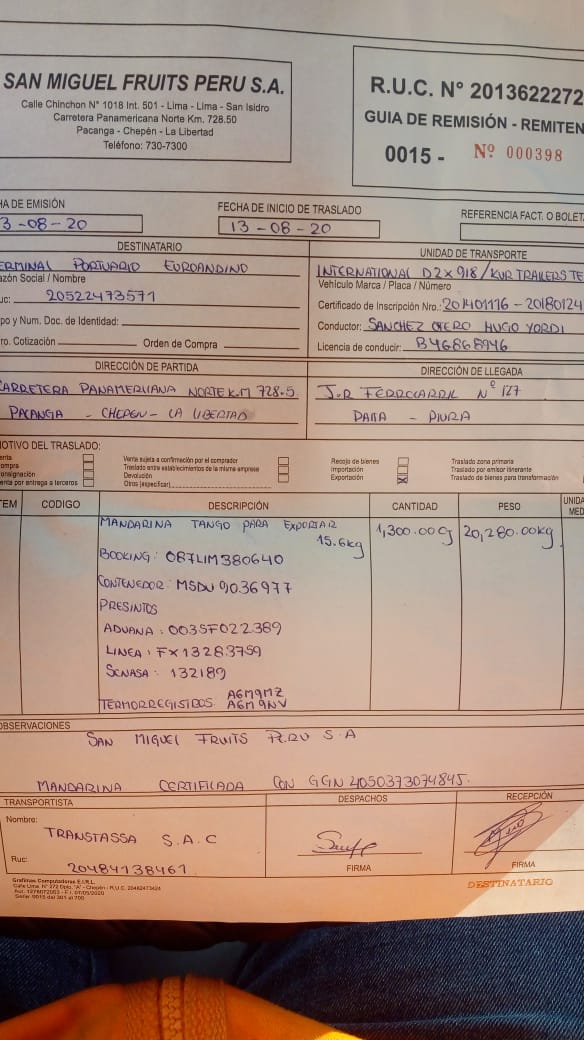 SAN MIGUEL FRUITS PERU S.A.
Calle Chinchon N° 1018 Int. 501 - Lima - Lima - San Isidro
Carretera Panamericana Norte Km. 728.50
Pacanga - Chepén - La Libertad
Teléfono: 730-7300
R.U.C. N° 2013622272
GUIA DE REMISIÓN - REMITEN
0015 - Nº 000398
HA DE EMISIÓN
3-08-20
FECHA DE INICIO DE TRASLADO
13-08-20
REFERENCIA FACT. O BOLETA
DESTINATARIO
ERMINAL PORTUARIO EUROANDINO
azón Social / Nombre
uc: 20522473571
po y Num. Doc. de Identidad:
ro. Cotización Orden de Compra
UNIDAD DE TRANSPORTE
INTERNATIONAL D2X918/KUR TRAILERS TE
Vehículo Marca / Placa / Número
Certificado de Inscripción Nro.: 201401116 - 20180124
Conductor: SANCHEZ OTERO HUGO YORDI
Licencia de conducir: B46868946
DIRECCIÓN DE PARTIDA
CARRETERA PANAMERICANA NORTE K.M 728.5
PACANGA - CHEPEN - LA LIBERTAD
DIRECCIÓN DE LLEGADA
J.R FERROCARRIL Nº 127
PAITA - PIURA
OTIVO DEL TRASLADO:
enta
ompra
onsignación
enta por entrega a terceros
Venta sujeta a confirmación por el comprador
Traslado entre establecimientos de la misma empresa
Devolución
Otros (especificar)
Recojo de bienes
Importación
Exportación
Traslado zona primaria
Traslado por emisor itinerante
Traslado de bienes para transformación
TEM CODIGO DESCRIPCIÓN CANTIDAD PESO UNIDA
MED
MANDARINA TANGO PARA EXPORTAR 1,300.00 20,280.00kg
15.6kg
BOOKING: 087LIM380640
CONTENEDOR: MSDU 9036977
PRESINTOS
ADUANA: 0035F022389
LINEA: FX13283759
SENASA: 132189
TERMORREGISTROS A6M9MZ
A6M9NV
OBSERVACIONES
SAN MIGUEL FRUITS PERU S.A
MANDARINA CERTIFICADA CON GGN 4050373074845.
TRANSPORTISTA
Nombre:
TRANSTASSA S.A.C
Ruc: 20484138461
DESPACHOS
FIRMA
RECEPCIÓN
FIRMA
Graficas Computadoras E.I.R.L.
Serie: 0015 del 301 al 700
DESTINATARIO